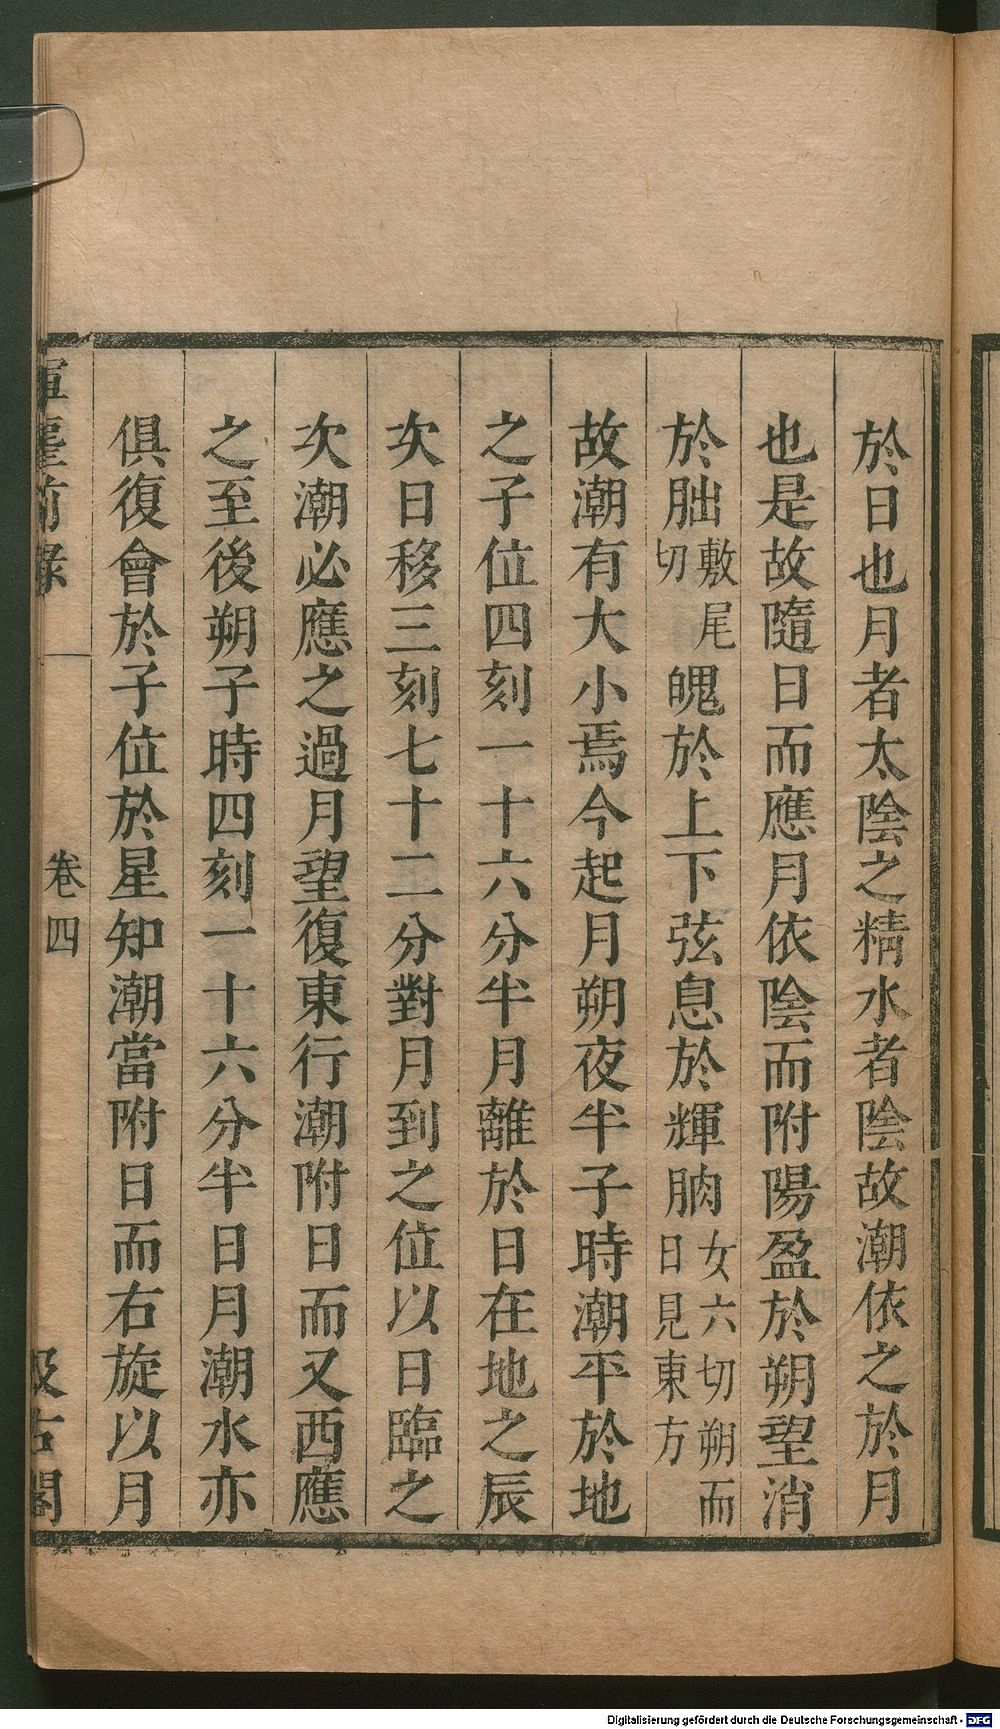 於日也月者太陰之精水者陰故潮依之於月
也是故隨日而應月依陰而附陽盈於朔望消
於朏敷尾切魄於上下弦息於輝朒女六切朔而日見東方
故潮有大小焉今起月朔夜半子時潮平於地
之子位四刻一十六分半月離於日在地之辰
次日移三刻七十二分對月到之位以日臨之
次潮必應之過月望復東行潮附日而又西應
之至後朔子時四刻一十六分半日月潮水亦
俱復會於子位於星知潮當附日而右旋以月
卷四
Digitalisierung gefördert durch die Deutsche Forschungsgemeinschaft - DFG